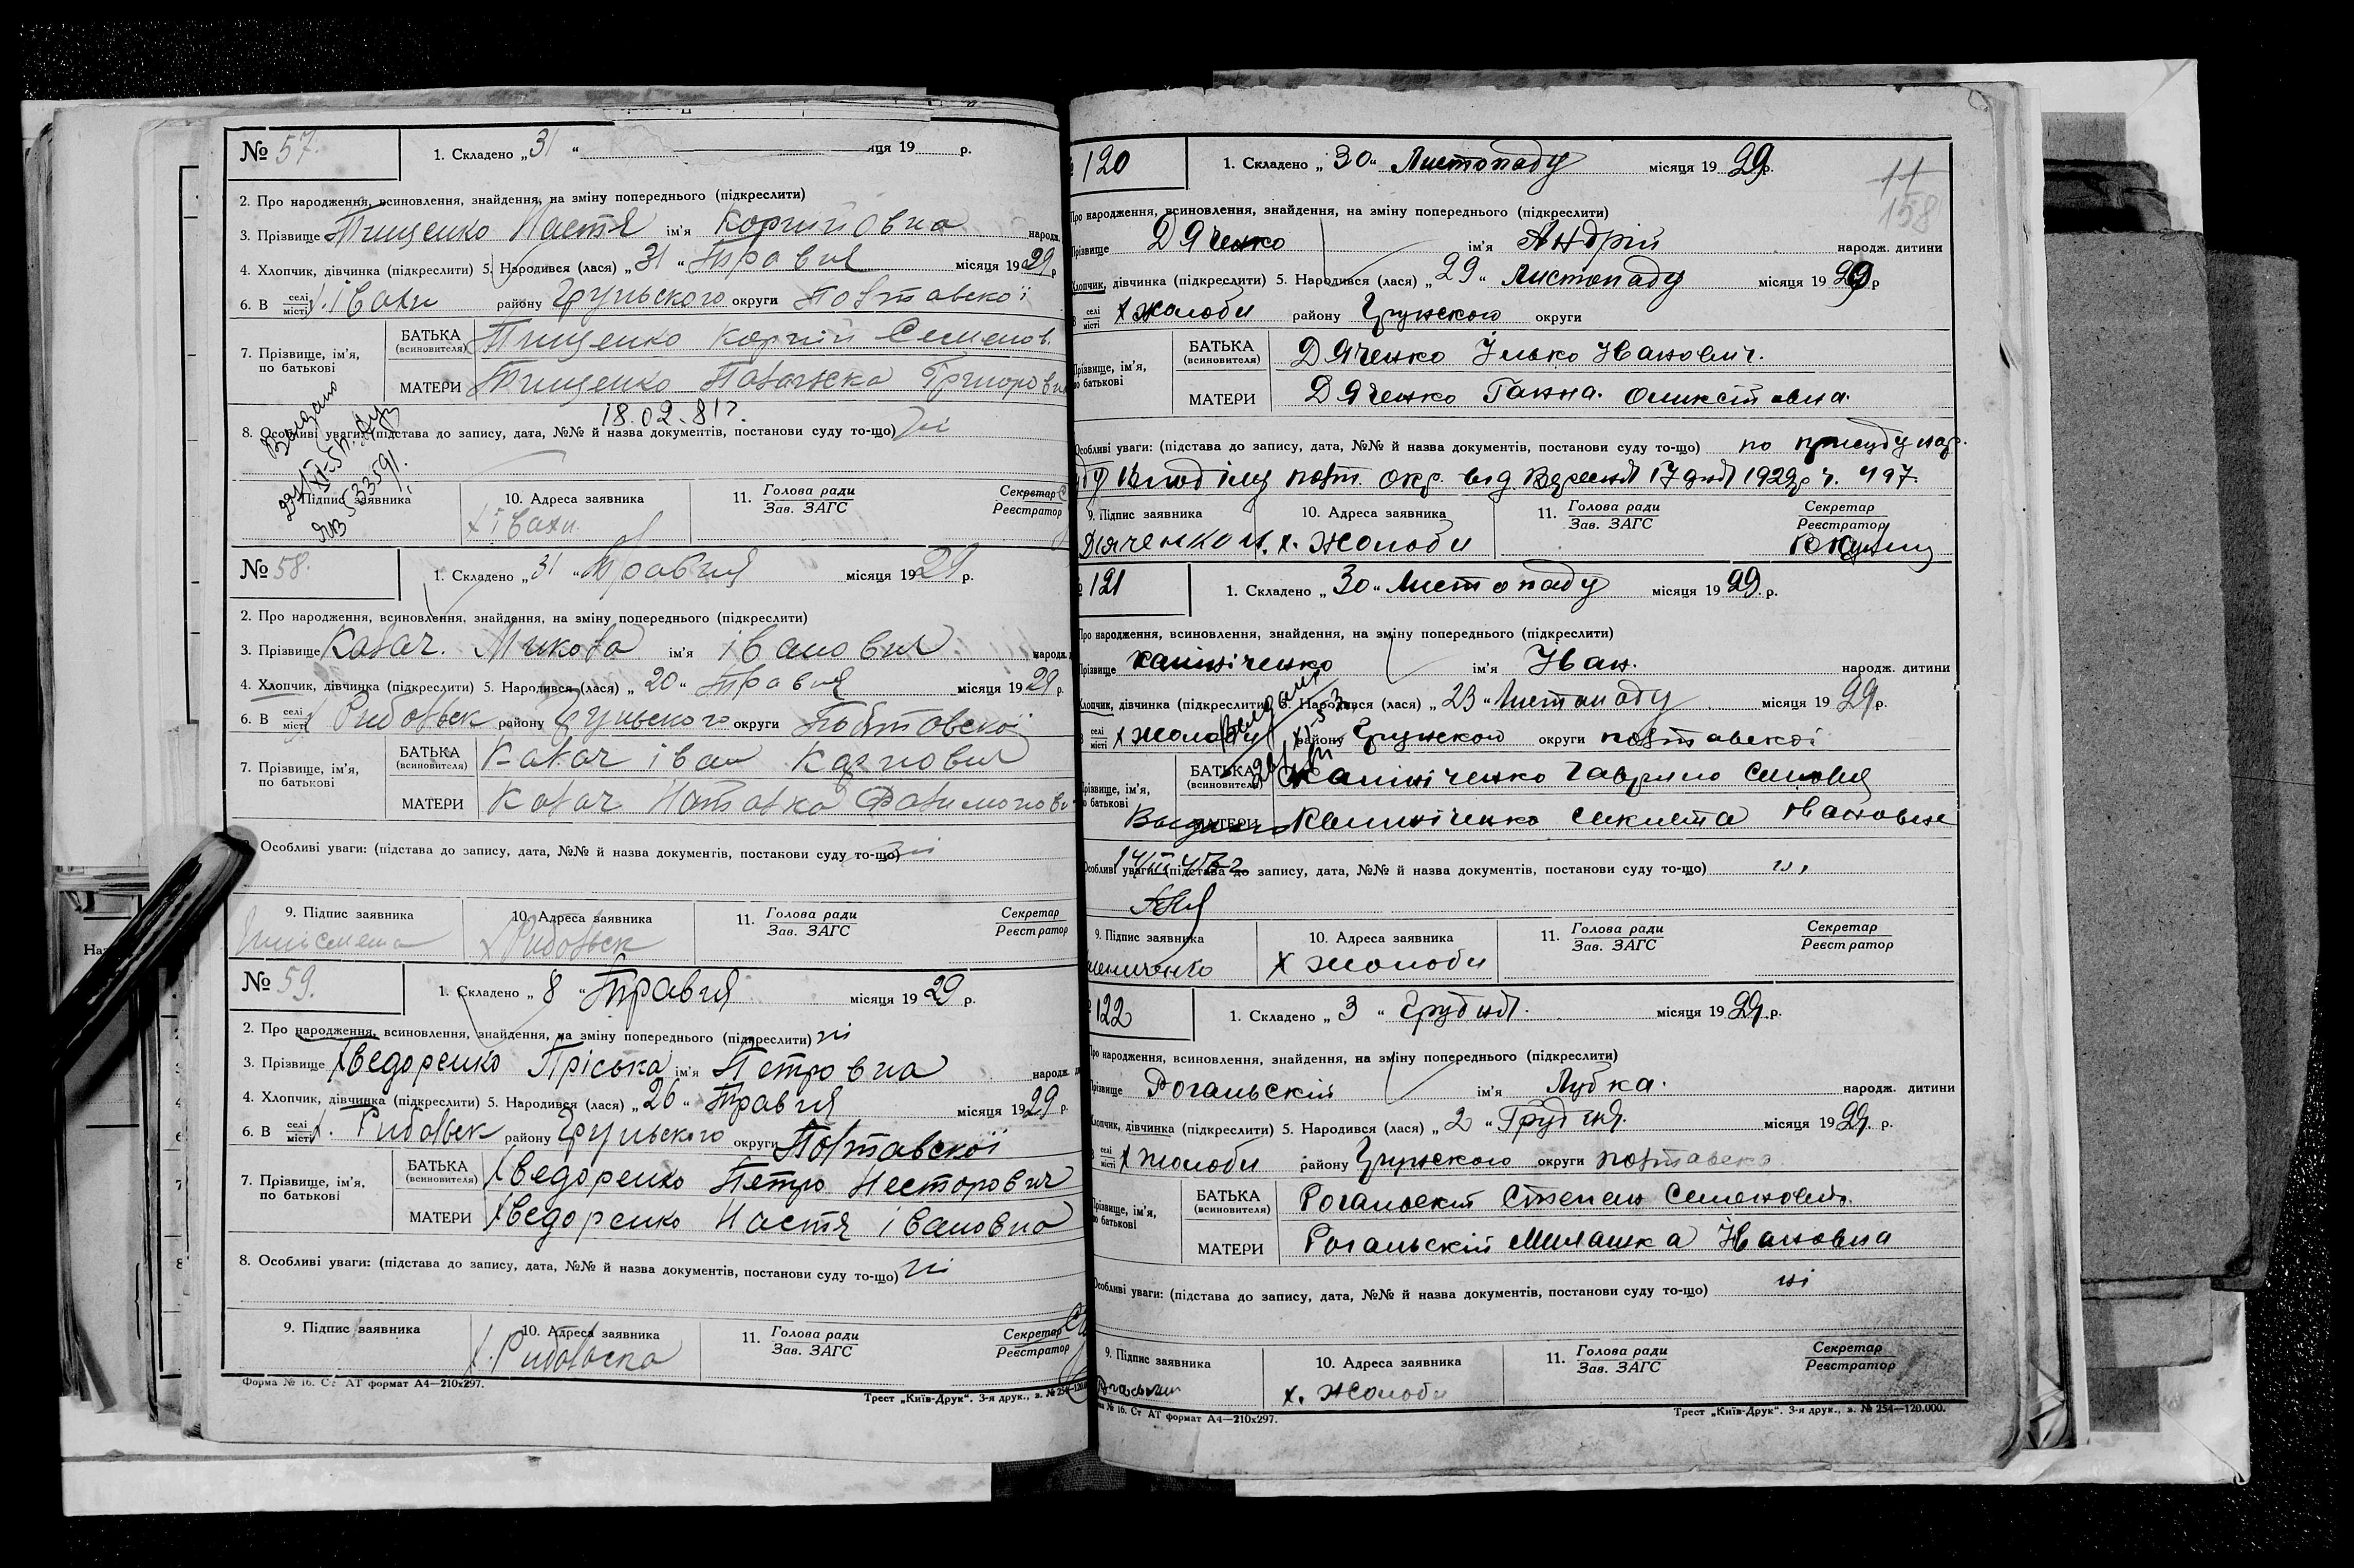 № 57. 1. Складено „ 31 “ яця 19 р.
2. Про народження, всиновлення, знайдення, на зміну попереднього (підкреслити)
3. Прізвище Тищенко Настя ім'я Корнийовна народж.
4. Хлопчик, дівчинка (підкреслити) 5. Народився (лася) „ 31 “ Травня місяця 1929 р
6. В селі місті х. івахи району Грунського округи Полтавскої
7. Прізвище, ім'я, по батькові
БАТЬКА (всиновителя) Тищенко Корній Семенов.
МАТЕРИ Тищенко Палажка Григоровна
18.02.81?.
8. Особливі уваги: (підстава до запису, дата, №№ й назва документів, постанови суду то-що) ні
Видано
533591.
Підпис заявника 10. Адреса заявника 11. Голова ради Зав. ЗАГС Секретар Реєстратор
х івахи.
№ 58. 1. Складено „ 31 “ Травня місяця 1929 р.
2. Про народження, всиновлення, знайдення, на зміну попереднього (підкреслити)
3. Прізвище Калач. Микола ім'я іванович народж. д
4. Хлопчик, дівчинка (підкреслити) 5. Народився (лася) „ 20 “ Травня місяця 1929 р.
6. В селі місті х Рибальск району Грунського округи Полтовскої
7. Прізвище, ім'я, по батькові
БАТЬКА (всиновителя) Калач іван Карпович
МАТЕРИ Калач Наталка
Особливі уваги: (підстава до запису, дата, №№ й назва документів, постанови суду то-що) ні
9. Підпис заявника 10. Адреса заявника 11. Голова ради Зав. ЗАГС Секретар Реєстратор
х Рибальск
№ 59. 1. Складено „ 8 “ Травня місяця 1929 р.
2. Про народження, всиновлення, знайдення, на зміну попереднього (підкреслити) ні
3. Прізвище Хведоренко Пріська ім'я Петровна народж. д
4. Хлопчик, дівчинка (підкреслити) 5. Народився (лася) „ 26 “ Травня місяця 1929 р.
6. В селі місті х. Рибальск району Грунського округи Полтавскої
7. Прізвище, ім'я, по батькові
БАТЬКА (всиновителя) Хведоренко Петро Несторович
МАТЕРИ Хведоренко Настя івановна
8. Особливі уваги: (підстава до запису, дата, №№ й назва документів, постанови суду то-що) ні
9. Підпис заявника 10. Адреса заявника 11. Голова ради Зав. ЗАГС Секретар Реєстратор
х. Рибалька
Форма № 16. Ст АТ формат А4—210x297. Трест „Київ-Друк“. 3-я друк., з. № 254—120.0
120 1. Складено „ 30 “ Листопаду місяця 1929 р.
11
158
Про народження, всиновлення, знайдення, на зміну попереднього (підкреслити)
Прізвище Дяченко ім'я Андрій народж. дитини
Хлопчик, дівчинка (підкреслити) 5. Народився (лася) „ 29 “ Листопаду місяця 1929 р
В селі місті х Жолоби району Грунского округи
Прізвище, ім'я, по батькові
БАТЬКА (всиновителя) Дяченко Ілько Іванович.
МАТЕРИ Дяченко Ганна. Оликсіївна.
Особливі уваги: (підстава до запису, дата, №№ й назва документів, постанови суду то-що) по присуду нар.
полт. окр. від Вересня 17 дня 1929 р ч. 497.
9. Підпис заявника 10. Адреса заявника 11. Голова ради Зав. ЗАГС Секретар Реєстратор
Дяченко И. х. Жолоби
121 1. Складено „ 30 “ Листопаду місяця 1929. р.
Про народження, всиновлення, знайдення, на зміну попереднього (підкреслити)
Прізвище Калініченко ім'я Іван. народж. дитини
Хлопчик, дівчинка (підкреслити) 5. Народився (лася) „ 23 “ Листопаду місяця 1929 р.
В селі місті х Жолоби району Грунского округи полтавскоі
Прізвище, ім'я, по батькові
БАТЬКА (всиновителя) Калініченко Гаврило
МАТЕРИ Калініченко Секлета Івановна
Особливі уваги: (підстава до запису, дата, №№ й назва документів, постанови суду то-що) ні
9. Підпис заявника 10. Адреса заявника 11. Голова ради Зав. ЗАГС Секретар Реєстратор
х Жолоби
122 1. Складено „ 3 “ Грудня. місяця 1929. р.
Про народження, всиновлення, знайдення, на зміну попереднього (підкреслити)
Прізвище Рогальскій ім'я Лубка. народж. дитини
Хлопчик, дівчинка (підкреслити) 5. Народився (лася) „ 2 “ Грудня. місяця 1929. р.
В селі місті х Жолоби району Грунского округи полтавско
Прізвище, ім'я, по батькові
БАТЬКА (всиновителя) Рогальскій Степан Семенович.
МАТЕРИ Рогальскій Милашка Івановна
Особливі уваги: (підстава до запису, дата, №№ й назва документів, постанови суду то-що) ні
9. Підпис заявника 10. Адреса заявника 11. Голова ради Зав. ЗАГС Секретар Реєстратор
х. Жолоби
№ 16. Ст АТ формат А4—210x297. Трест „Київ-Друк“. 3-я друк., з. № 254—120.000.